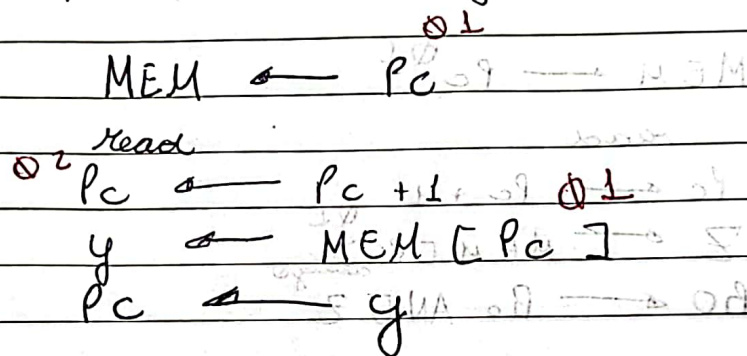 Φ1
MEM ← Pc
read
Φ2 Pc ← Pc +1 Φ1
y ← MEM [ Pc ]
Pc ← y